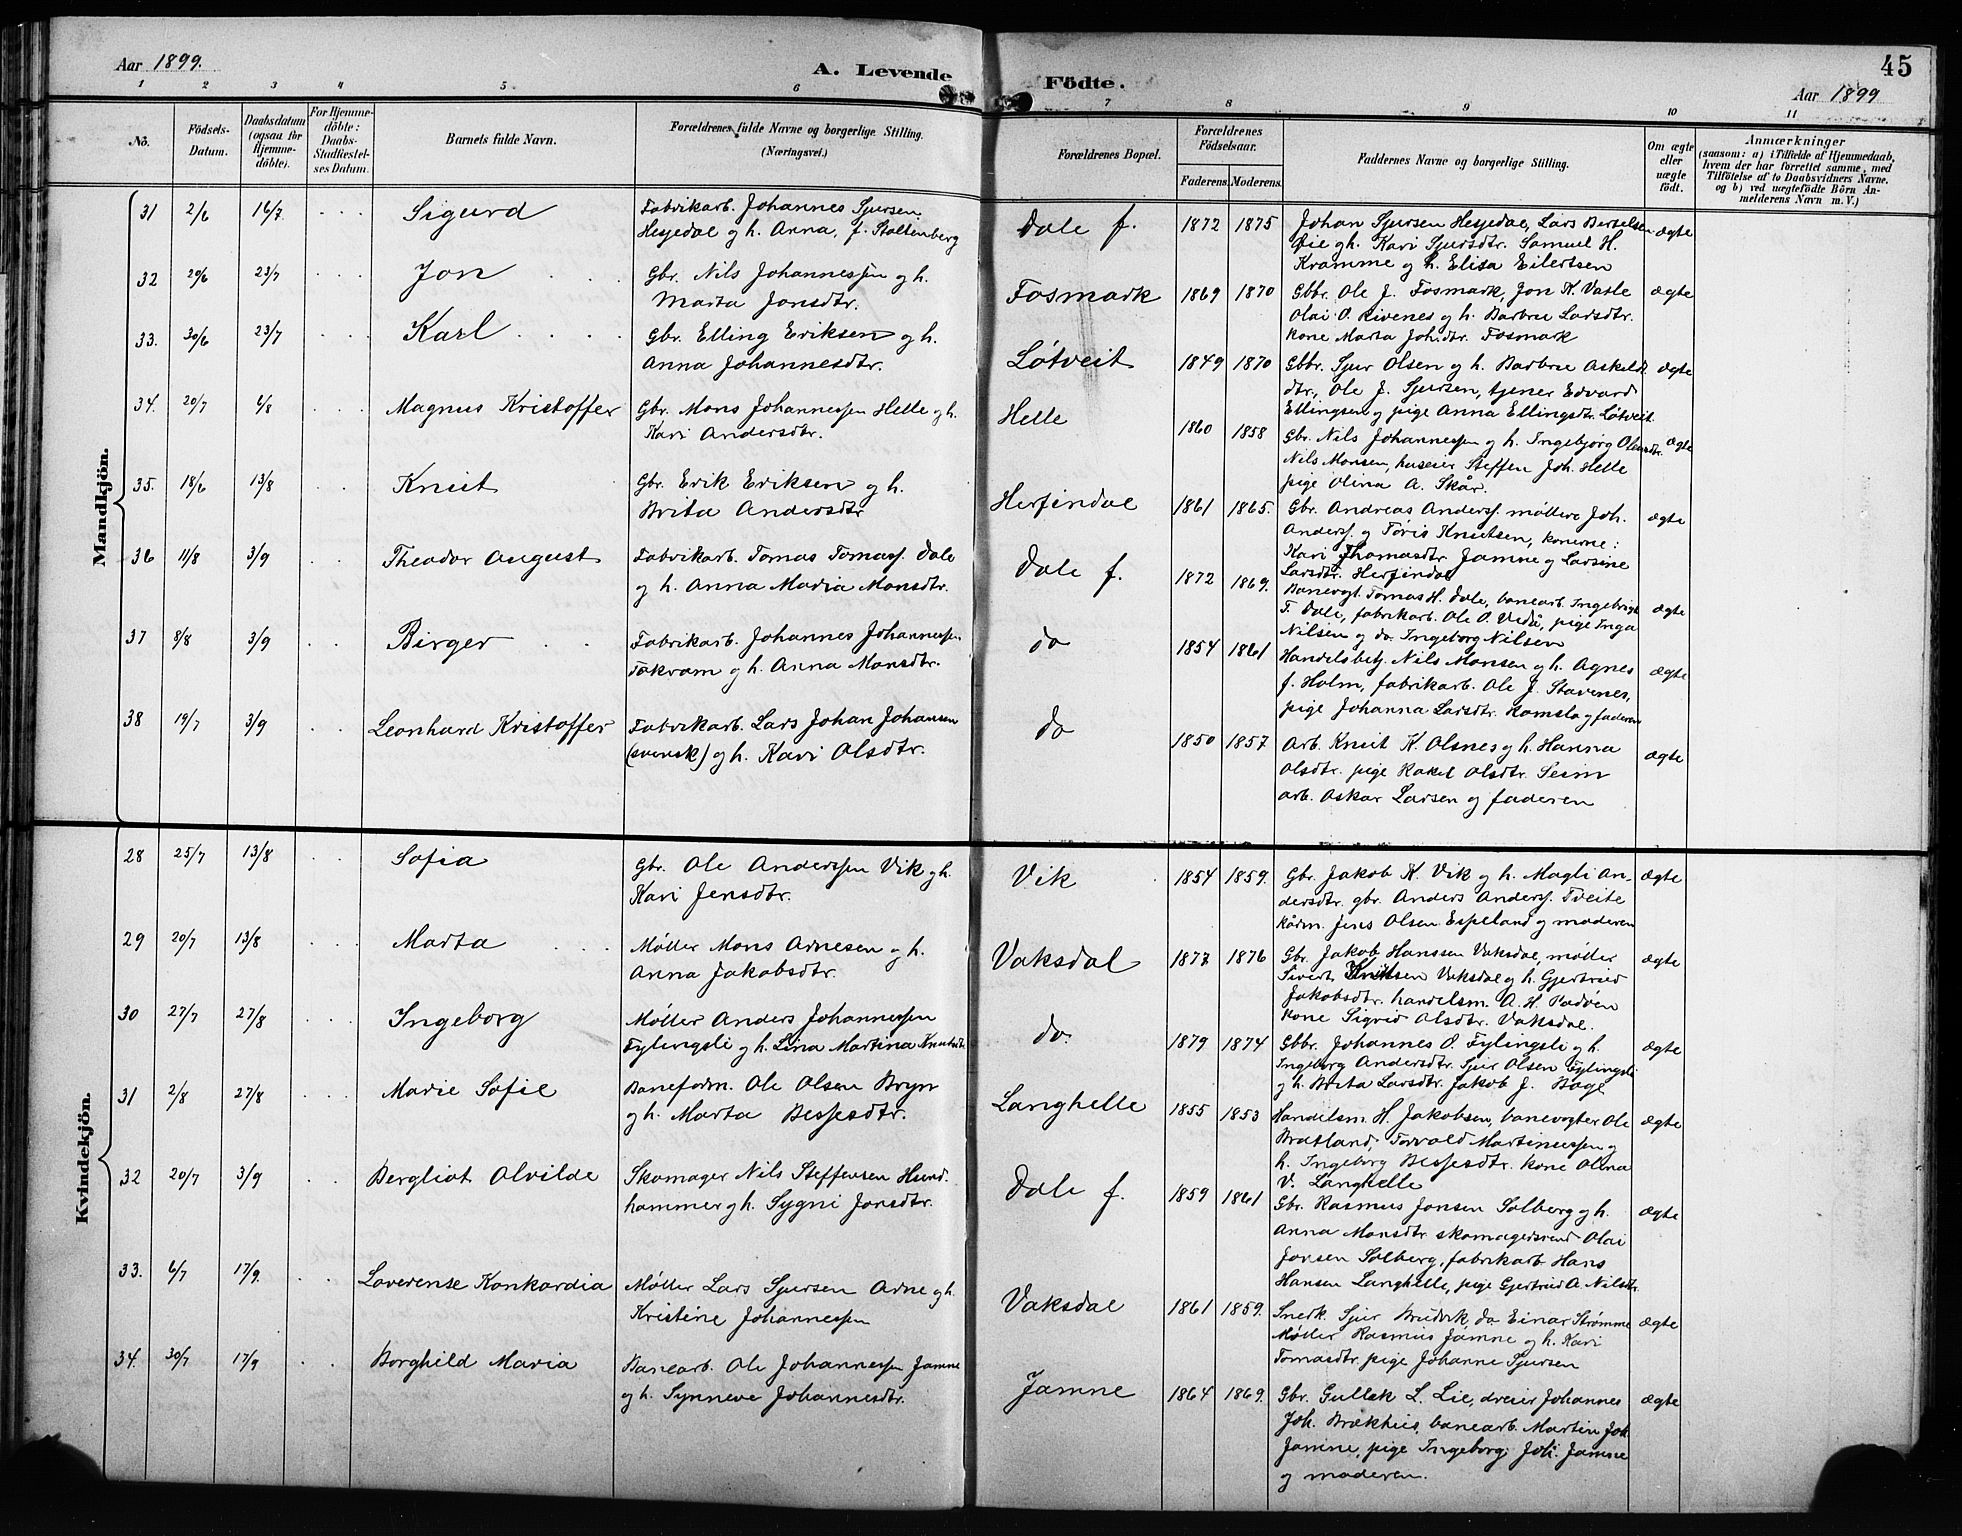 Aar 1899.
A. Levende Födte.
45
Aar 1899
1 2 3 4 5 6 7 8 9 10 11
No.
Födsels-Datum.
Daabsdatum (ogsaa for Hjemme-döbte).
For Hjemme-döbte: Daabs-Stadfæstel-ses Datum.
Barnets fulde Navn.
Forældrenes fulde Navne og borgerlige Stilling. (Næringsvei.)
Forældrenes Bopæl.
Forældrenes Födselsaar.
Faderens. Moderens.
Faddernes Navne og borgerlige Stilling.
Om ægte eller uægte födt.
Anmærkninger
(saasom: a) i Tilfælde af Hjemmedaab,
hvem der har forrettet samme, med
Tilföielse af to Daabsvidners Navne.
og b) ved uægtefödte Börn An-
melderens Navn m. V.)
Mandkjön.
31 2/6 16/7 Sigurd
Fabrikarb. Johannes Sjursen
Hesjedal og h. Anna, f. Stoltenberg
Dale f. 1872 1875
Johan Sjursen Hesjedal, Lars Bertelsen
Øie og h. Kari Sjursdtr. Samuel H.
Kramme og h. Elisa Eilertsen
ægte
32 20/6 23/7 Jon
Gbr. Nils Johannessen og h.
Marta Jonsdtr.
Fosmark 1869 1870
Gbbr. Ole J. Fosmark, Jon K. Vatle
Olai O. Rivenes og h. Barbru Larsdtr.
kone Marta Joh.dtr. Fosmark
ægte
33. 30/6 23/7 Karl
Gbr. Elling Eriksen og h.
Anna Johannesdtr.
Løtveit 1849 1870
Gbbr. Sjur Olsen og h. Barbru Askelds
dtr., Ole J. Sjursen, tjener Edvard
Ellingsen og pige Anna Ellingsdtr. Løtveit.
ægte
34. 20/7 6/8 Magnus Kristoffer
Gbr. Mons Johannessen Helle og h.
Kari Andersdtr.
Helle 1860 1858
Gbr. Nils Johannessen og h. Ingebjorg Olsdtr.
Nils Monsen, huseier Steffen Joh. Helle
pige Olina A. Skår.
ægte
35. 18/6 13/8 Knut
Gbr. Erik Eriksen og h.
Brita Andersdtr
Herfindal 1861 1865.
Gbr. Andreas Anderss. møllere Joh.
Anderss. og Tøris Knutsen, konerne:
Kari Thomasdtr Jamne og Larsine
Larsdtr. Herfindal
ægte
36 11/8 3/9 Theodor August
Fabrikarb. Tomas Tomass. Dale
og h. Anna Maria Monsdtr.
Dale f. 1872 1869.
Banevogt. Tomas H. Dale, banearb. Ingebrigt
T. Dale, fabrikarb. Ole O. Vedå, pige Inga
Nilsen og do. Ingeborg Nilsen
ægte
37 8/8 3/9 Birger
Fabrikarb. Johannes Johannessen
Takvam og h. Anna Monsdtr.
do 1854 1861
Handelsbetj. Nils Monsen og h. Agnes
f. Holm, fabrikarb. Ole J. Stavenes,
pige Johanna Larsdtr. Romslo og faderen
ægte
38 19/7 3/9 Leonhard Kristoffer
Fabrikarb. Lars Johan Johansen
(svensk) og h. Kari Olsdtr.
do 1850 1857
Arb. Knut K. Olsnes og h. Hanna
Olsdtr. pige Rakel Olsdtr. Seim
arb. Oskar Larsen og faderen
ægte
Kvindekjön.
28 25/7 13/8 Sofia
Gbr. Ole Anderssen Vik og h.
Kari Jensdtr.
Vik 1854 1859.
Gbr. Jakob K. Vik og h. Magli An-
dersdtr. gbr. Anders Anderss. Tveite
kårm. Jens Olsen Espeland og moderen
ægte
29 20/7 13/8 Marta
Møller Mons Arnesen og h.
Anna Jakobsdtr.
Vaksdal 1877 1876
Gbr. Jakob Hanssen Vaksdal, møller
Sivert Knutsen Vaksdal og h. Gjertrud
Jakobsdtr. handelsm. A. H. Padøen
kone Sigrid Olsdtr. Vaksdal.
ægte
30 27/7 27/8 Ingeborg
Møller Anders Johannessen
Fylingsli og h. Lina Martina Knutsdtr.
do. 1879 1874
Gbbr. Johannes O. Fylingsli og h.
Ingeborg Andersdtr. Sjur Olsen Fylingsli
og h. Brita Larsdtr. Jakob J. Boge
ægte
31 2/8 27/8 Marie Sofie
Baneform. Ole Olsen Bryn
og h. Marta Bessesdtr.
Langhelle 1855 1853
Handelsm. H. Jakobsen, banevogter Ole
Bratland, Torvald Martinussen og
h. Ingeborg Bessesdtr. kone Olina
V. Langhelle
ægte
32 20/7 3/9 Bergliot Olvilde
Skomager Nils Steffensen Hund-
hammer og h. Sygni Jonsdtr.
Dale f. 1859 1861
Gbr. Rasmus Jonsen Solberg og h.
Anna Monsdtr skomagersvend Olai
Jonsen Solberg, fabrikarb. Hans
Hansen Langhelle, pige Gjertrud A. Nilsdtr.
ægte
33. 6/7 17/9. Laverense Konkordia
Møller Lars Sjursen Arne og h.
Kristine Johannessen
Vaksdal 1861 1859.
Snedk. Sjur Brudvik, do Einar Strømme
Møller Rasmus Jamne og h. Kari
Tomasdtr. pige Johanne Sjursen
ægte
34. 30/7 17/9 Borghild Maria
Banearb. Ole Johannessen Jamne
og h. Synneve Johannesdtr.
Jamne 1864 1869.
Gbr. Gullak L. Lie, dreier Johannes
Joh. Brækhus, banearb. Martin Joh.
Jamne, pige Ingeborg Joh. Jamne
og moderen.
ægte